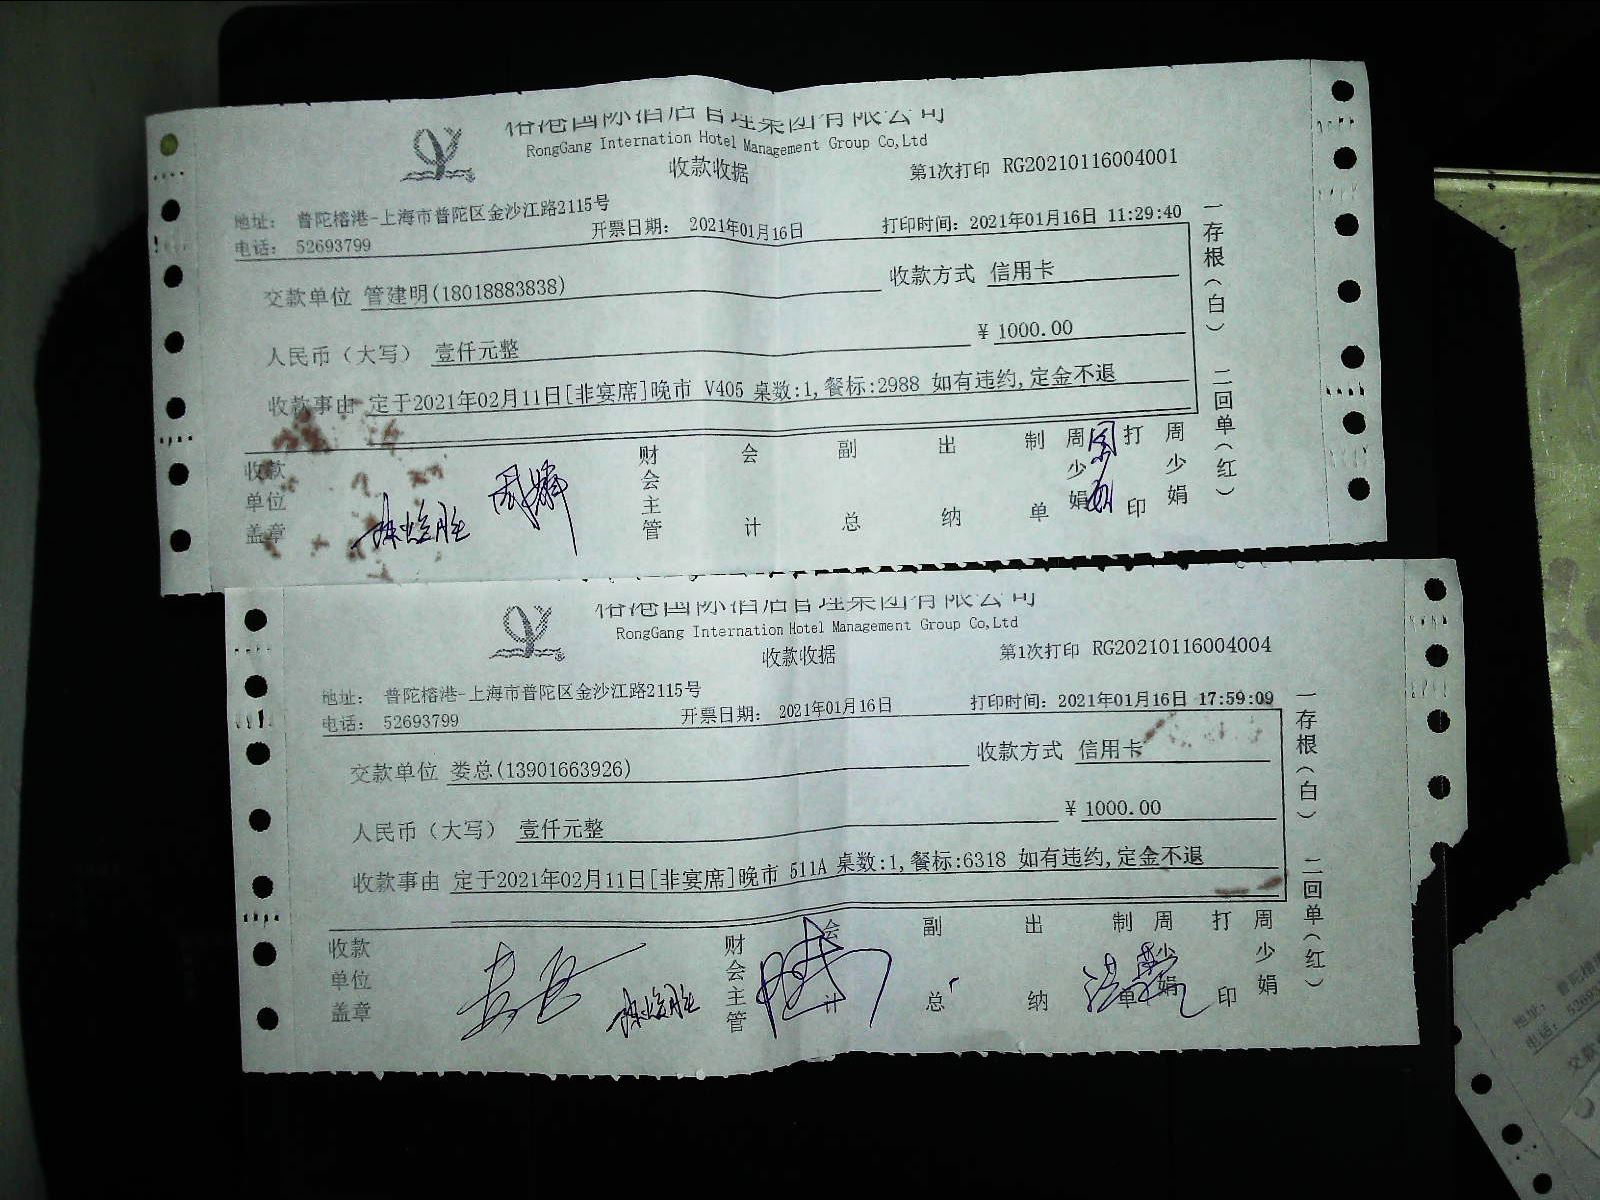 榕港国际酒店管理集团有限公司
RongGang Internation Hotel Management Group Co,Ltd
收款收据
第1次打印 RG20210116004001
地址： 普陀榕港-上海市普陀区金沙江路2115号
电话： 52693799
开票日期： 2021年01月16日
打印时间：2021年01月16日 11:29:40
交款单位 管建明(18018883838)
收款方式 信用卡
人民币（大写） 壹仟元整
¥ 1000.00
收款事由 定于2021年02月11日[非宴席]晚市 V405 桌数:1,餐标:2988 如有违约,定金不退
收款单位盖章
财会主管
会计
副总
出纳
制单
周少娟
打印
周少娟
一存根（白） 二回单（红）
榕港国际酒店管理集团有限公司
RongGang Internation Hotel Management Group Co,Ltd
收款收据
第1次打印 RG20210116004004
地址： 普陀榕港-上海市普陀区金沙江路2115号
电话： 52693799
开票日期： 2021年01月16日
打印时间：2021年01月16日 17:59:09
交款单位 娄总(13901663926)
收款方式 信用卡
人民币（大写） 壹仟元整
¥ 1000.00
收款事由 定于2021年02月11日[非宴席]晚市 511A 桌数:1,餐标:6318 如有违约,定金不退
收款单位盖章
财会主管
会计
副总
出纳
制单
周少娟
打印
周少娟
一存根（白） 二回单（红）
地址：
电话：